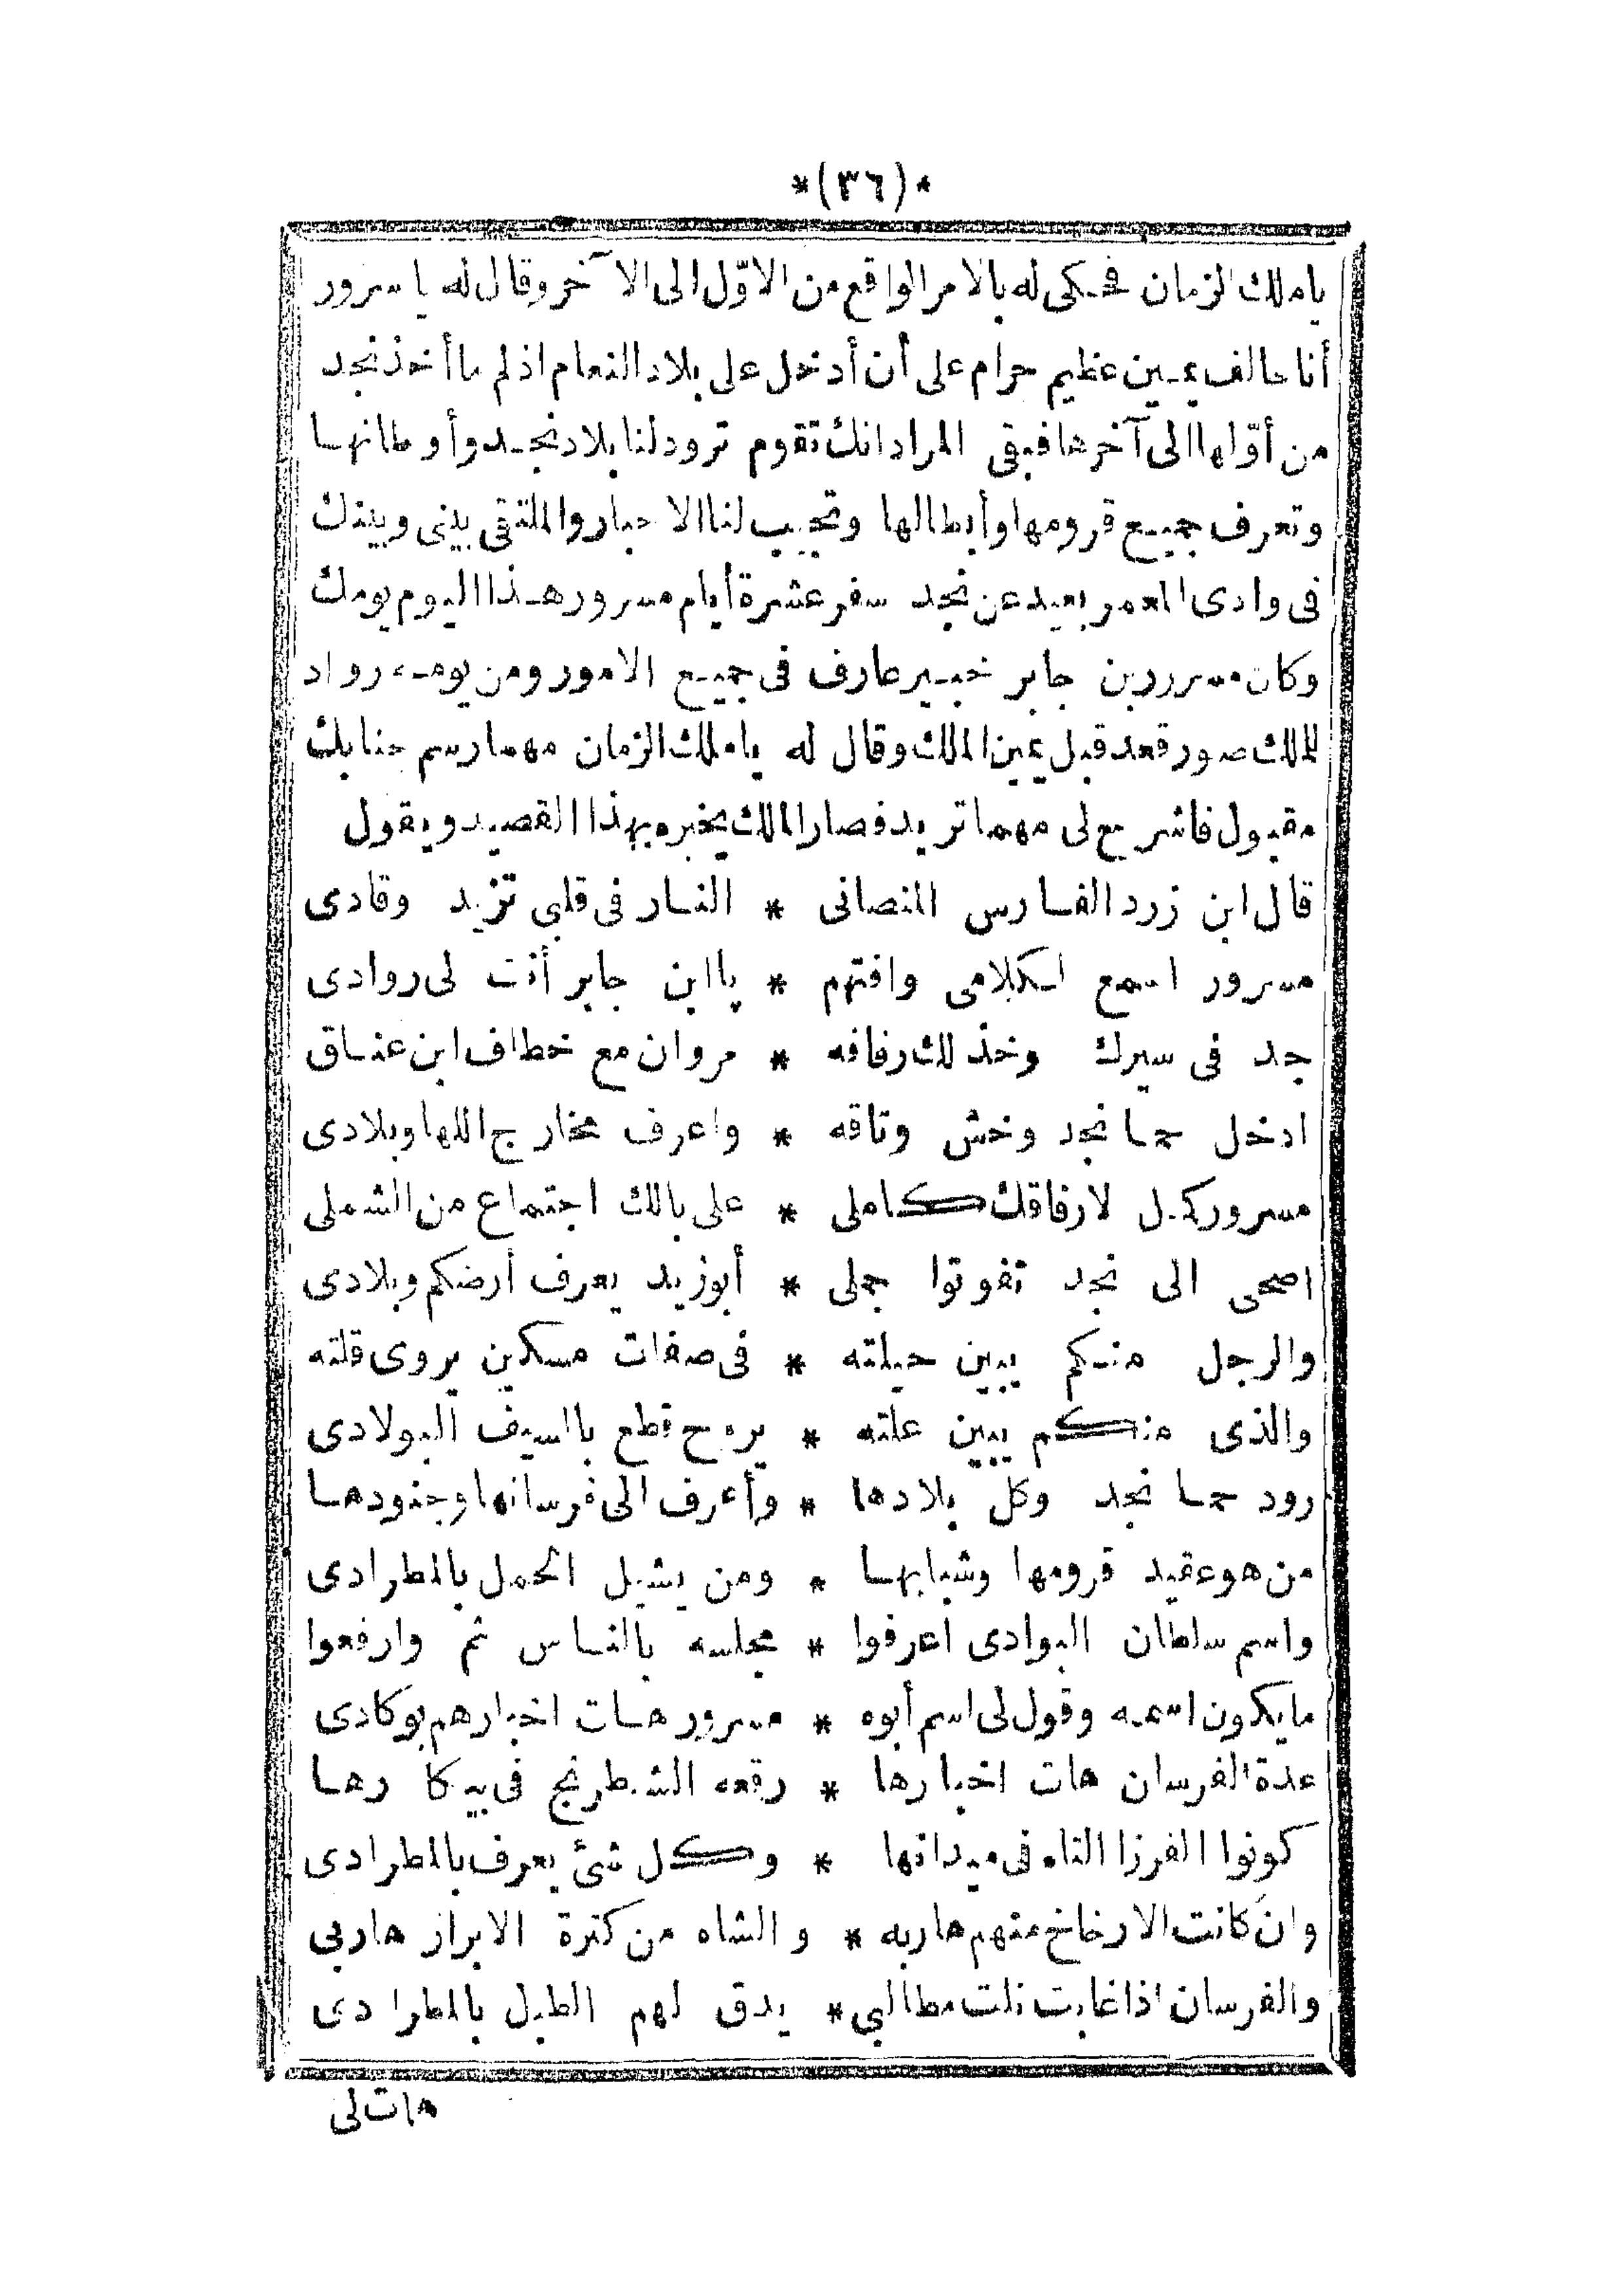 *(٣٦)*
ياملك الزمان فحكى له بالامر الواقع من الاوّل الى الآخر وقال له يامسرور
أنا حالف يمين عظيم حرام على أن أدخل على بلاد النعام اذلم ما أخذ نجد
من أوّلها الى آخرها فبقى المراد انك تقوم ترود لنا بلاد نجد وأوطانها
وتعرف جميع قرومها وأبطالها وتجيب لنا الاخبار والملتقى بينى وبينك
فى وادى المعمر بعيد عن نجد سفر عشرة أيام مسرور هذا اليوم يومك
وكان مسرور بن جابر خبير عارف فى جميع الامور ومن يومه رواد
للملك صور قعد قبل يمين الملك وقال له ياملك الزمان مهما رسم جنابك
مقبول فاشرع لى مهما تريد فصار الملك يخبره بهذا القصيد ويقول
قال ابن زرد الفارس المنصانى * النار فى قلبى تزيد وقادى
مسرور اسمع لكلامى وافتهم * ياابن جابر أنت لى روادى
جد فى سيرك وخذ لك رفاقه * مروان مع خطاف ابن عناق
ادخل حما نجد وخش وتاقه * واعرف مخارج اللها وبلادى
مسرور كل لارفاقك كاملى * على بالك اجتماع من الشملى
اصحى الى نجد تفوتوا جملى * أبوزيد يعرف أرضكم وبلادى
والرجل منكم يبين حيلته * فى صفات مسكين يروى قلته
والذى منكم يبين علته * يروح قطع بالسيف البولادى
رود حما نجد وكل بلادها * وأعرف الى فرسانها وجنودها
من هو عقيد قرومها وشبابها * ومن يشيل الحمل بالمطرادى
واسم سلطان البوادى اعرفوا * مجلسه بالناس ثم وارفعوا
مايكون اسمه وقول لى اسم أبوه * مسرور هات اخبارهم بوكادى
عدة الفرسان هات اخبارها * رقعه الشطرنج فى بيكارها
كونوا الفرزا التاه فى ميدانها * وكل شئ يعرف بالمطرادى
وان كانت الارخاخ منهم هاربه * والشاه من كثرة الابراز هاربى
والفرسان اذا غابت نلت مطالبى * يدق لهم الطبل بالمطرادى
هات لى